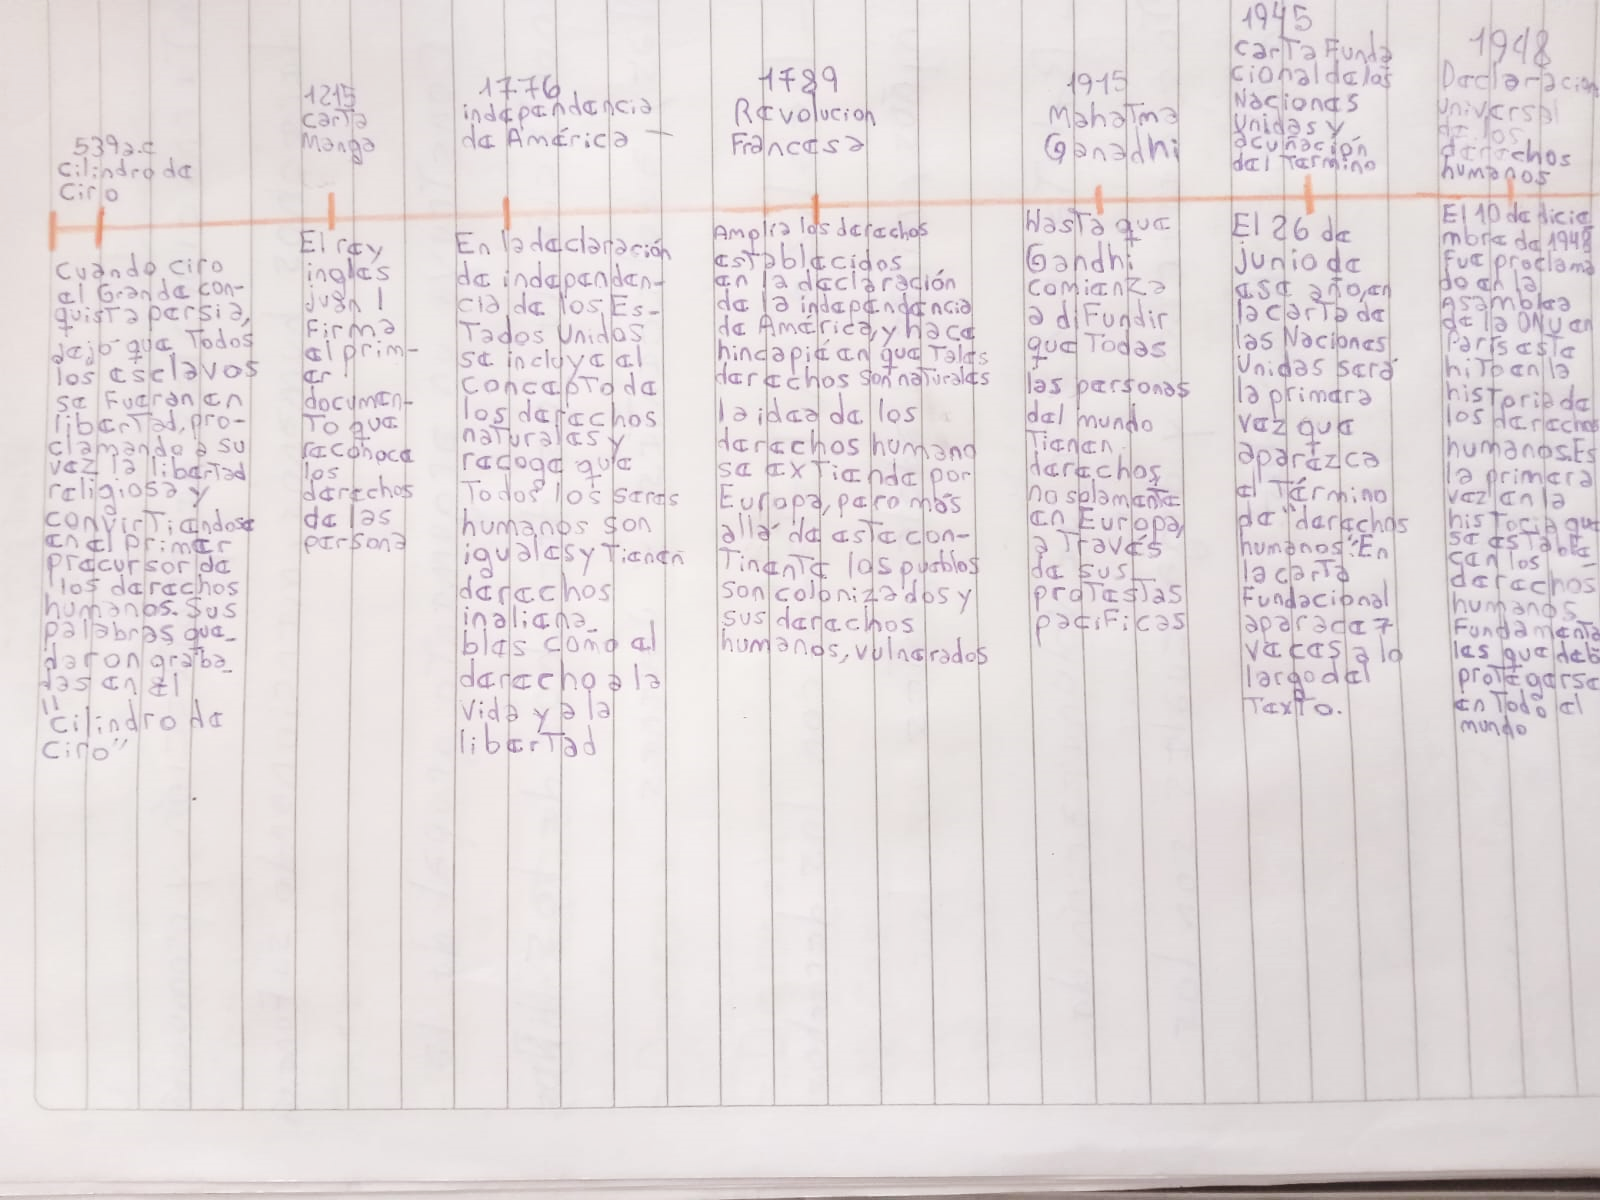 539a.c
Cilindro de
Ciro
Cuando Ciro
el Grande con-
quista persia,
dejó que Todos
los esclavos
se Fueran en
liberTad, pro-
clamando a su
vez la liberTad
religiosa y
convirTiendose
en el primer
precursor de
los derechos
humanos. Sus
palabras que_
daron graba_
das en el
"Cilindro de
Ciro"
1215
CarTa
Manga
El rey
ingles
Juan I
Firma
el prim-
er
documen-
To que
reconoce
los
derechos
de las
persona
1776
independencia
de América
En la declaración
de independen-
cia de los Es-
Tados Unidos
se incluye el
concepTo de
los derechos
naTurales y
recoge que
Todos los seres
humanos son
iguales y Tienen
derechos
inaliena_
bles como el
derecho a la
vida y a la
liberTad
1789
Revolucion
Francesa
Amplia los derechos
esTablecidos
en la declaración
de la independencia
de América, y hace
hincapié en que Tales
derechos son naTurales
la idea de los
derechos humano
se exTiende por
Europa, pero más
allá de esTe con-
TinenTe los pueblos
son colonizados y
sus derechos
humanos, vulnerados
1915
MahaTma
Ganadhi
HasTa que
Gandhi
comienza
a diFundir
que Todas
las personas
del mundo
Tienen
derechos,
no solamenTe
en Europa,
a Través
de sus
proTesTas
paciFicas
1945
CarTa Funda
cional de las
Naciones
Unidas y
acuñación
del Termino
El 26 de
junio de
ese año, en
la carTa de
las Naciones
Unidas será
la primera
vez que
aparezca
el Término
de "derechos
humanos". En
la carTa
Fundacional
aparece 7
veces a lo
largo del
TexTo.
1948
Declaracion
universal
de los
derechos
humanos
El 10 de dicie
mbre de 1948
Fue proclama
do en la
Asamblea
de la ONU en
París esTe
hiTo en la
hisToria de
los derechos
humanos. Es
la primera
vez en la
hisToria que
se esTable
cen los
derechos
humanos
FundamenTa
les que deb
proTegerse
en Todo el
mundo